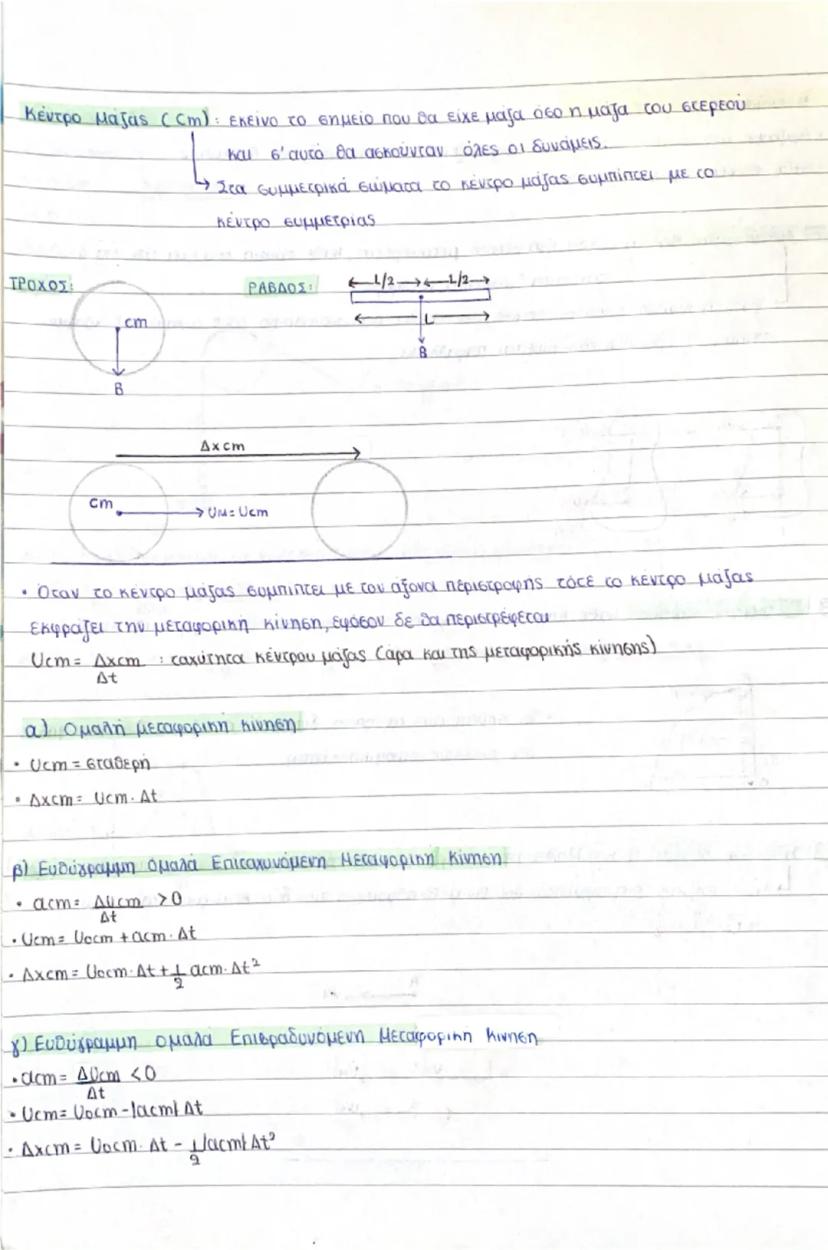 Κέντρο Μάζας (Cm): εκείνο το σημείο που θα είχε μάζα όσο η μάζα του στερεού
και σ' αυτό θα ασκούνταν όλες οι δυνάμεις.
→ Στα συμμετρικά σώματα το κέντρο μάζας συμπίπτει με το
κέντρο συμμετρίας
ΤΡΟΧΟΣ:
cm
B
ΡΑΒΔΟΣ:
L/2 L/2
L
B
Δxcm
cm
υμ = υcm
• Όταν το κέντρο μάζας συμπίπτει με τον άξονα περιστροφής τότε το κέντρο μάζας
εκφράζει την μεταφορική κίνηση, εφόσον δε θα περιστρέφεται
υcm = Δxcm/Δt : ταχύτητα κέντρου μάζας (άρα και της μεταφορικής κίνησης)
α) Ομαλή μεταφορική κίνηση
• υcm = σταθερή
• Δxcm = υcm · Δt
β) Ευθύγραμμη Ομαλά Επιταχυνόμενη Μεταφορική Κίνηση
• αcm = Δυcm/Δt > 0
• υcm = υ0cm + αcm · Δt
• Δxcm = υ0cm · Δt + 1/2 αcm · Δt²
γ) Ευθύγραμμη Ομαλά Επιβραδυνόμενη Μεταφορική Κίνηση
• αcm = Δυcm/Δt < 0
• υcm = υ0cm - |αcm| Δt
• Δxcm = υ0cm · Δt - 1/2 |αcm| Δt²